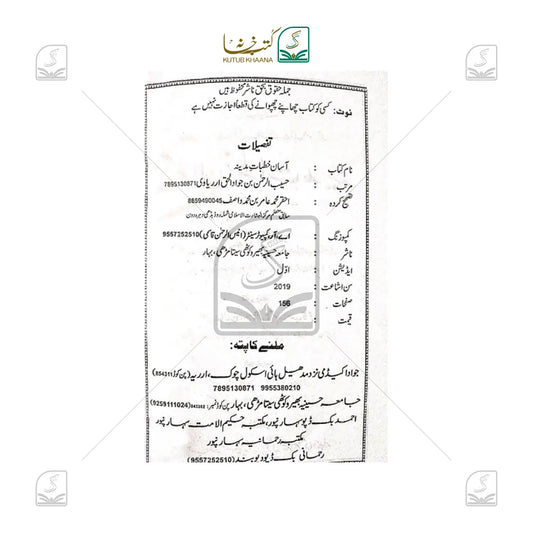 کتب خانہ
KUTUB KHAANA
جملہ حقوق بحق ناشر محفوظ ہیں
نوٹ: کسی کو کتاب چھاپنے چھپوانے کی قطعاً اجازت نہیں ہے
تفصیلات
نام کتاب : آسان خطبات مدینہ
مرتب : حسیب الرحمٰن بن جواد الحق ارریاوی 7895130871
تصحیح کردہ : احقر محمد عامر بن محمد واصف 8859490045
کمپوزنگ : اے، آر، کمپیوٹر سینٹر (انیس الرحمٰن قاسمی) 9557252510
ناشر : جامعہ حسینیہ بھیرو کوٹھی سیتامڑھی، بہار
ایڈیشن : اوّل
سن اشاعت : 2019
صفحات : 156
قیمت :
ملنے کا پتہ:
جواد اکیڈمی نزد مدھیل ہائی اسکول چوک، ارریہ (پن کوڈ 854311)
7895130871 9955380210
جامعہ حسینیہ بھیرو کوٹھی سیتامڑھی، بہار پن کوڈ نمبر: (9259111024)
احمد بک ڈپو سہارنپور، مکتبہ حکیم الامت سہارنپور
مکتبہ رحمانیہ سہارنپور
رحمانی بک ڈپو دیوبند (9557252510)